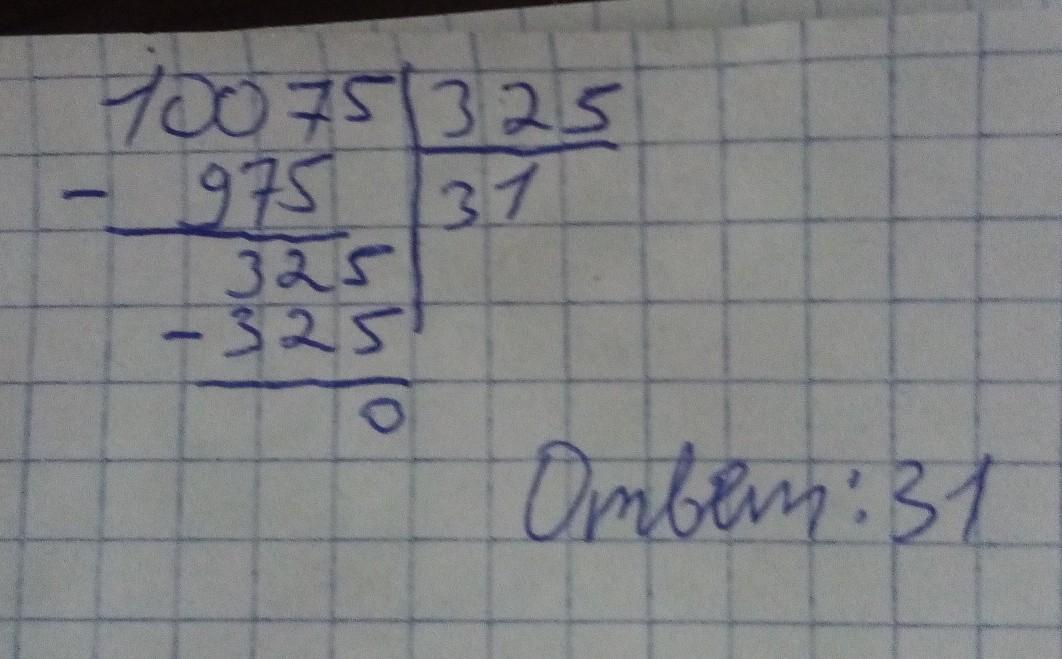 10075 325
- 975 31
325
- 325
0
Ответ: 31